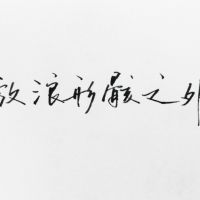 放浪形骸之外